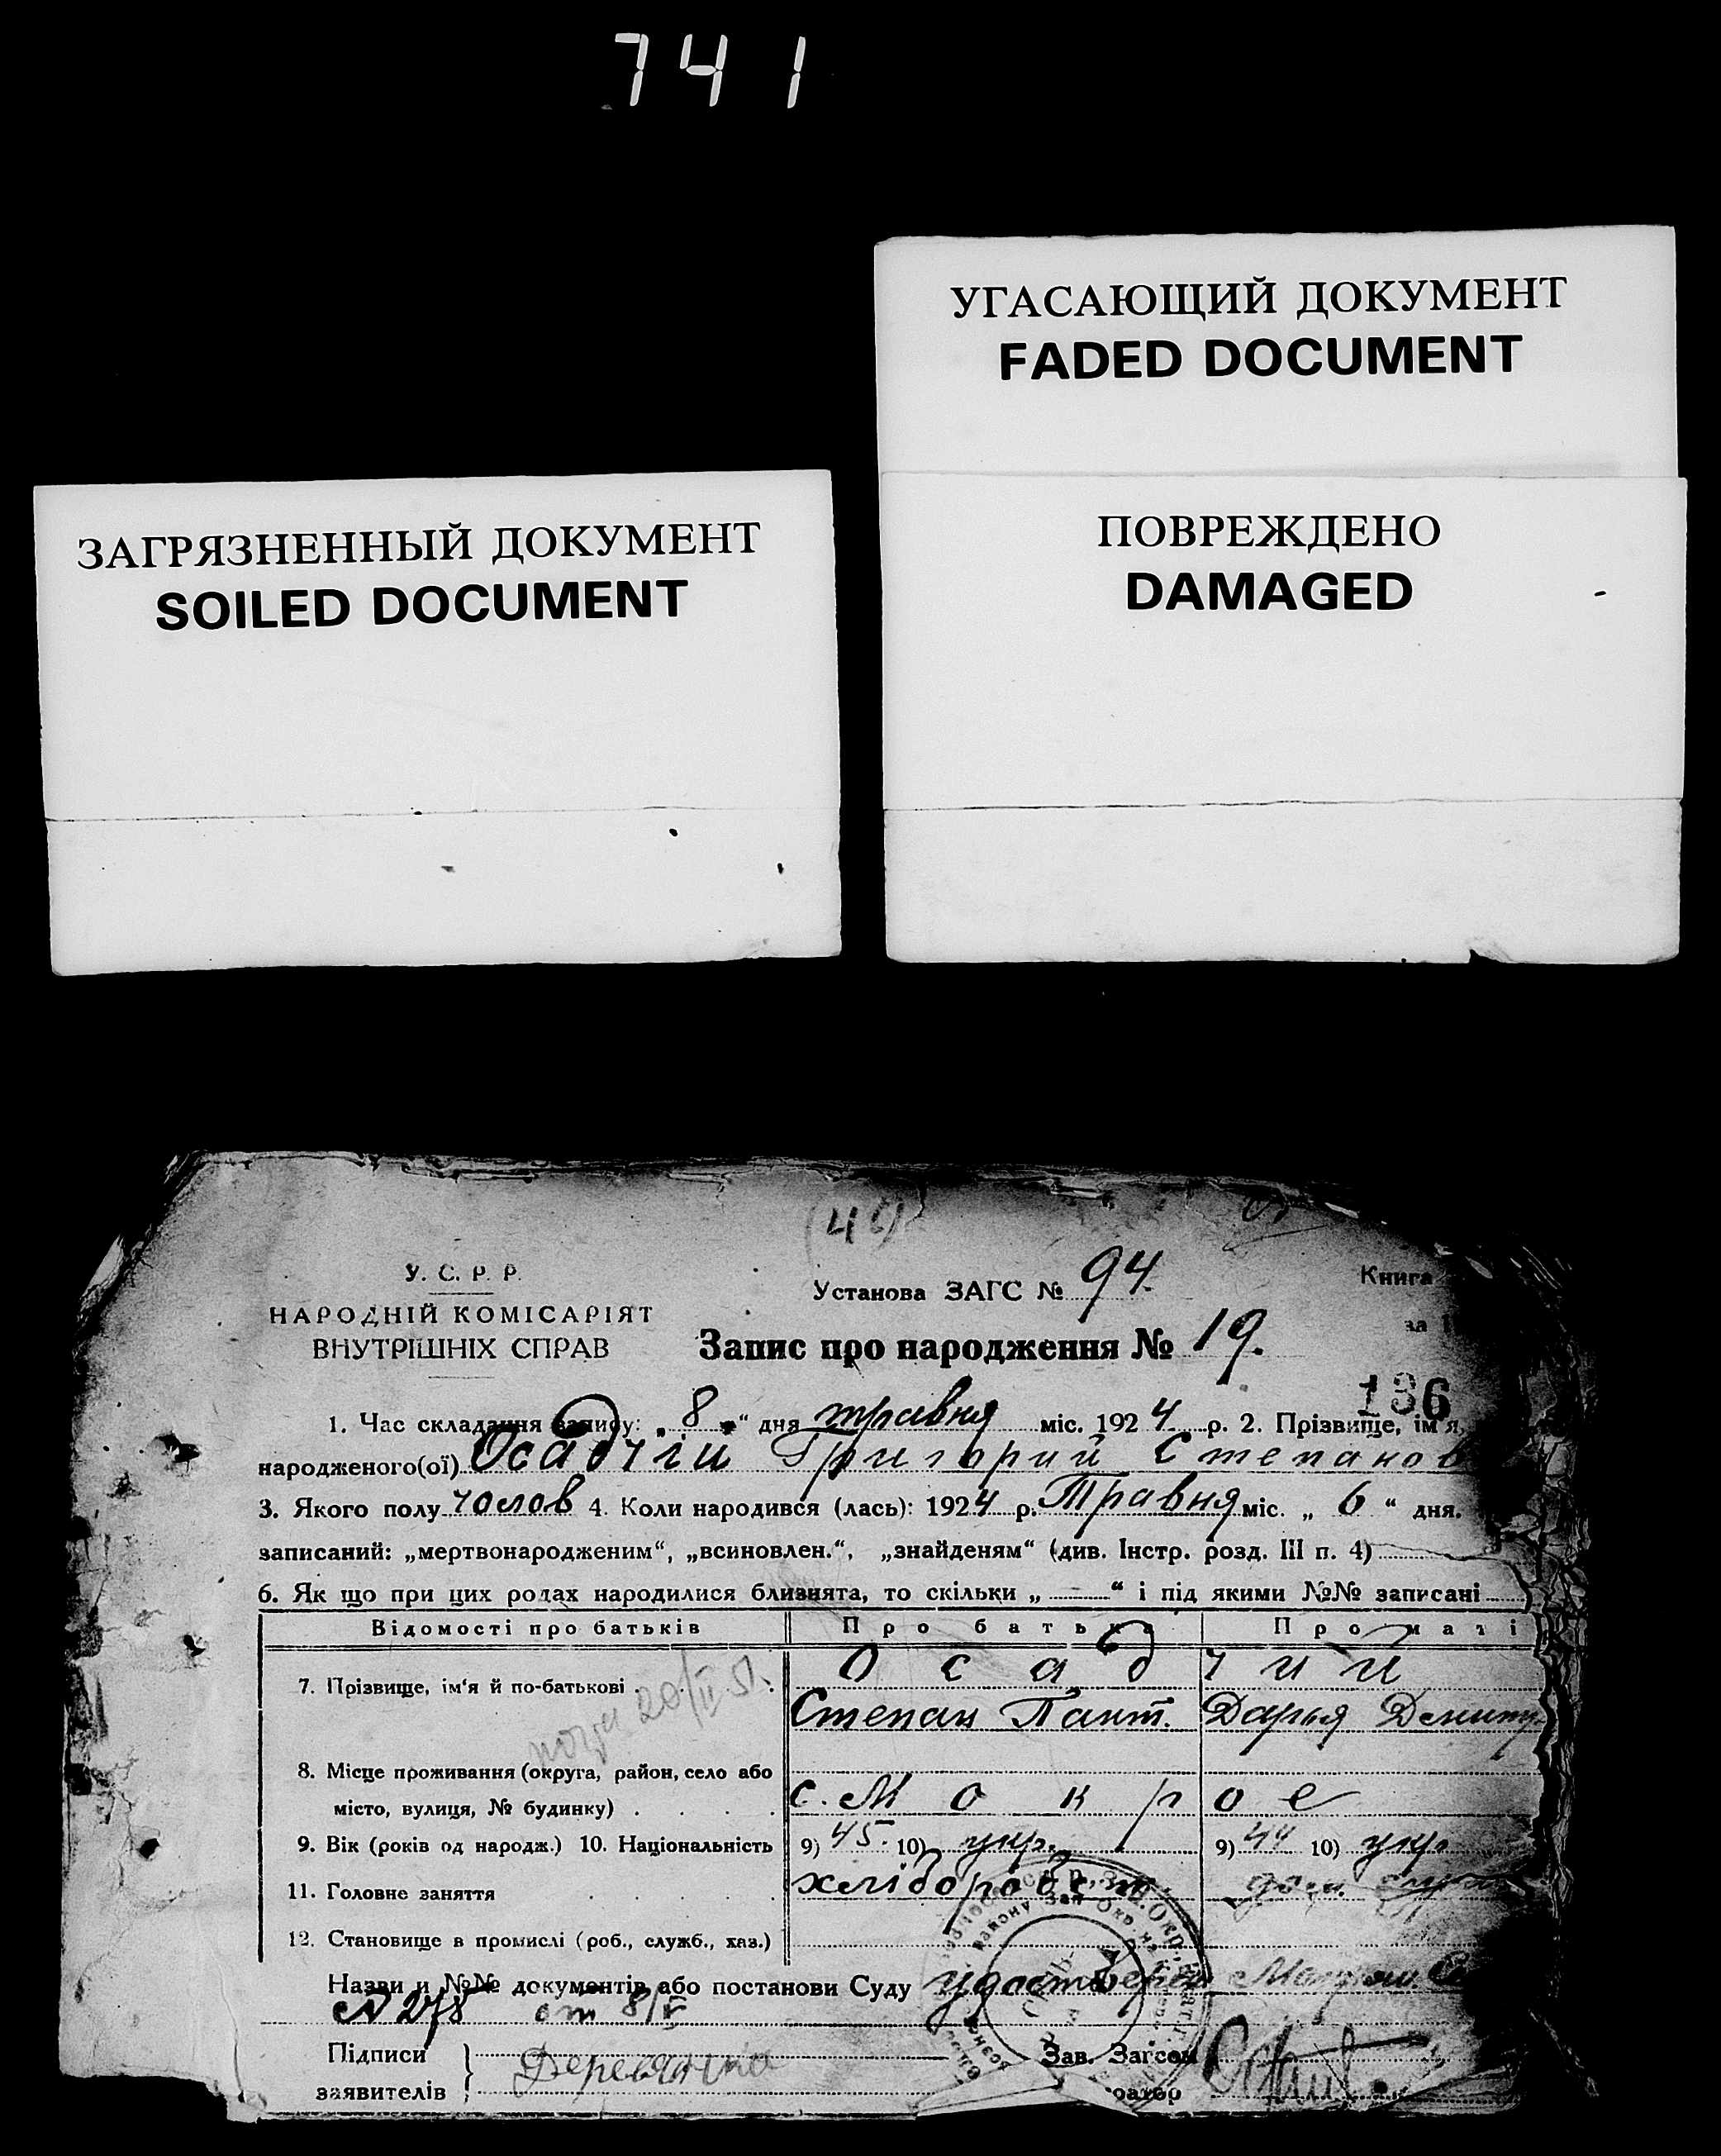 741
УГАСАЮЩИЙ ДОКУМЕНТ
FADED DOCUMENT
ЗАГРЯЗНЕННЫЙ ДОКУМЕНТ
SOILED DOCUMENT
ПОВРЕЖДЕНО
DAMAGED
У. С. Р. Р.
НАРОДНІЙ КОМІСАРІЯТ
ВНУТРІШНІХ СПРАВ
Установа ЗАГС № 94.
Книга
за 1
Запис про народження № 19.
136
1. Час складання запису: „ 8 “ дня травня міс. 1924 р. 2. Прізвище, ім'я,
народженого(ої) Осадчій Григорий Степанов
3. Якого полу чолов 4. Коли народився (лась): 1924 р. Травня міс. „ 6 “ дня.
записаний: „мертвонародженим“, „всиновлен.“, „знайденям“ (див. Інстр. розд. III п. 4)
6. Як що при цих родах народилися близнята, то скільки „ — “ і під якими №№ записані
Відомості про батьків Про батька Про маті
7. Прізвище, ім'я й по-батькові . Осадчий
20/II 51.
Степан Пант. Дарья Демит
8. Місце проживання (округа, район, село або
місто, вулиця, № будинку) . . . . с. Мокрое
9. Вік (років од народж.) 10. Національність 9) 45. 10) укр. 9) 44 10) укр
11. Головне заняття . . . . хлібороб дом.
12. Становище в промислі (роб., служб., хаз.)
Назви и №№ документів або постанови Суду удостовер
№ 278 от 8/V
Підписи
заявителів
Деревянко
Зав. Загсом
ратор